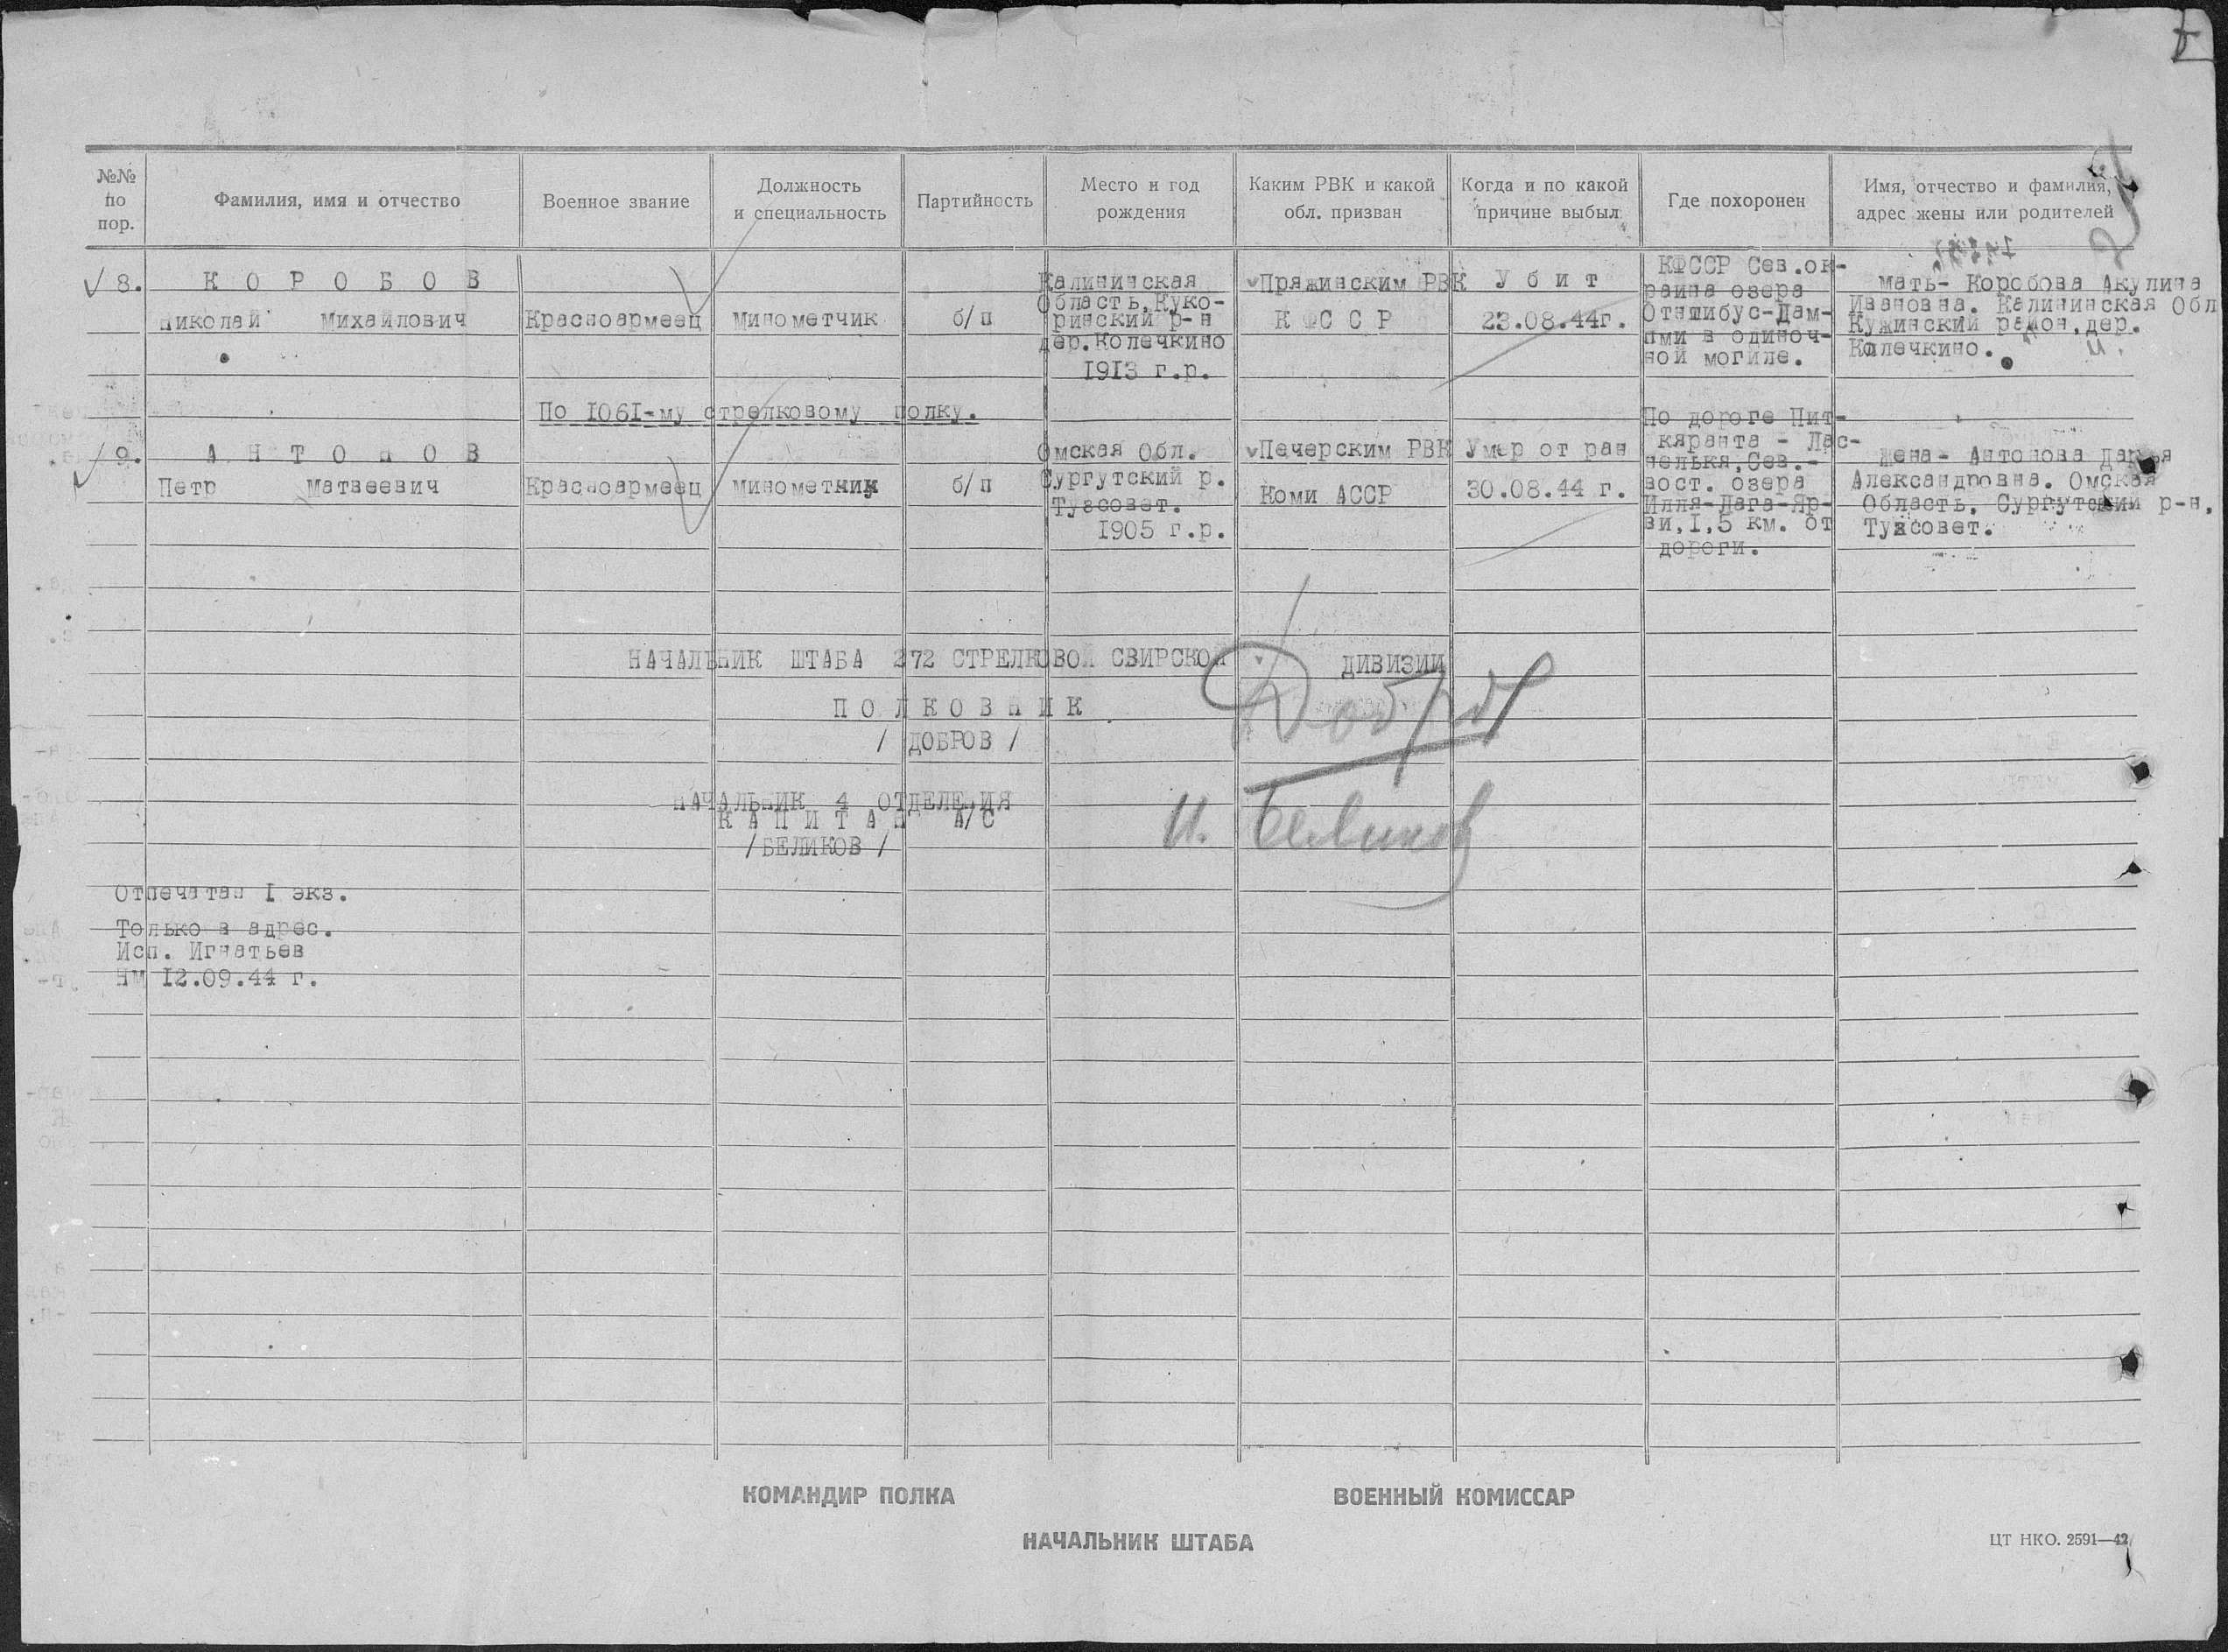 №№ по пор.
Фамилия, имя и отчество
Военное звание
Должность и специальность
Партийность
Место и год рождения
Каким РВК и какой обл. призван
Когда и по какой причине выбыл
Где похоронен
Имя, отчество и фамилия, адрес жены или родителей
8.
К О Р О Б О В
Николай Михайлович
Красноармеец
Минометчик
б/п
Калининская
Область, Куко-
ринский р-н
дер. Колечкино
1913 г.р.
Пряжинским РВК
К Ф С С Р
У б и т
23.08.44г.
КФССР Сев.ок-
раина озера
Отяшибус-Лам-
пми в одиноч-
ной могиле.
Мать- Коробова Акулина
Ивановна. Калининская Обл
Кужинский район, дер.
Колечкино.
По 1061-му стрелковому полку.
9.
А Н Т О Н О В
Петр Матвеевич
Красноармеец
Минометник
б/п
Омская Обл.
Сургутский р.
Тузсовет.
1905 г.р.
Печерским РВК
Коми АССР
Умер от ран
30.08.44 г.
По дороге Пит-
кяранта - Лас-
нелькя, Сев.-
вост. озера
Илля-Лага-Яр-
ви, 1,5 км. от
дороги.
Жена- Антонова Дарья
Александровна. Омская
Область. Сургутский р-н,
Тузсовет.
НАЧАЛЬНИК ШТАБА 272 СТРЕЛКОВОЙ СВИРСКОЙ ДИВИЗИИ
П О Л К О В Н И К
/ ДОБРОВ /
НАЧАЛЬНИК 4 ОТДЕЛЕНИЯ
К А П И Т А Н А/С
/БЕЛИКОВ /
И. Беликов
Отпечатан 1 экз.
Только в адрес.
Исп. Игнатьев
нм 12.09.44 г.
КОМАНДИР ПОЛКА
ВОЕННЫЙ КОМИССАР
НАЧАЛЬНИК ШТАБА
ЦТ НКО. 2591—42